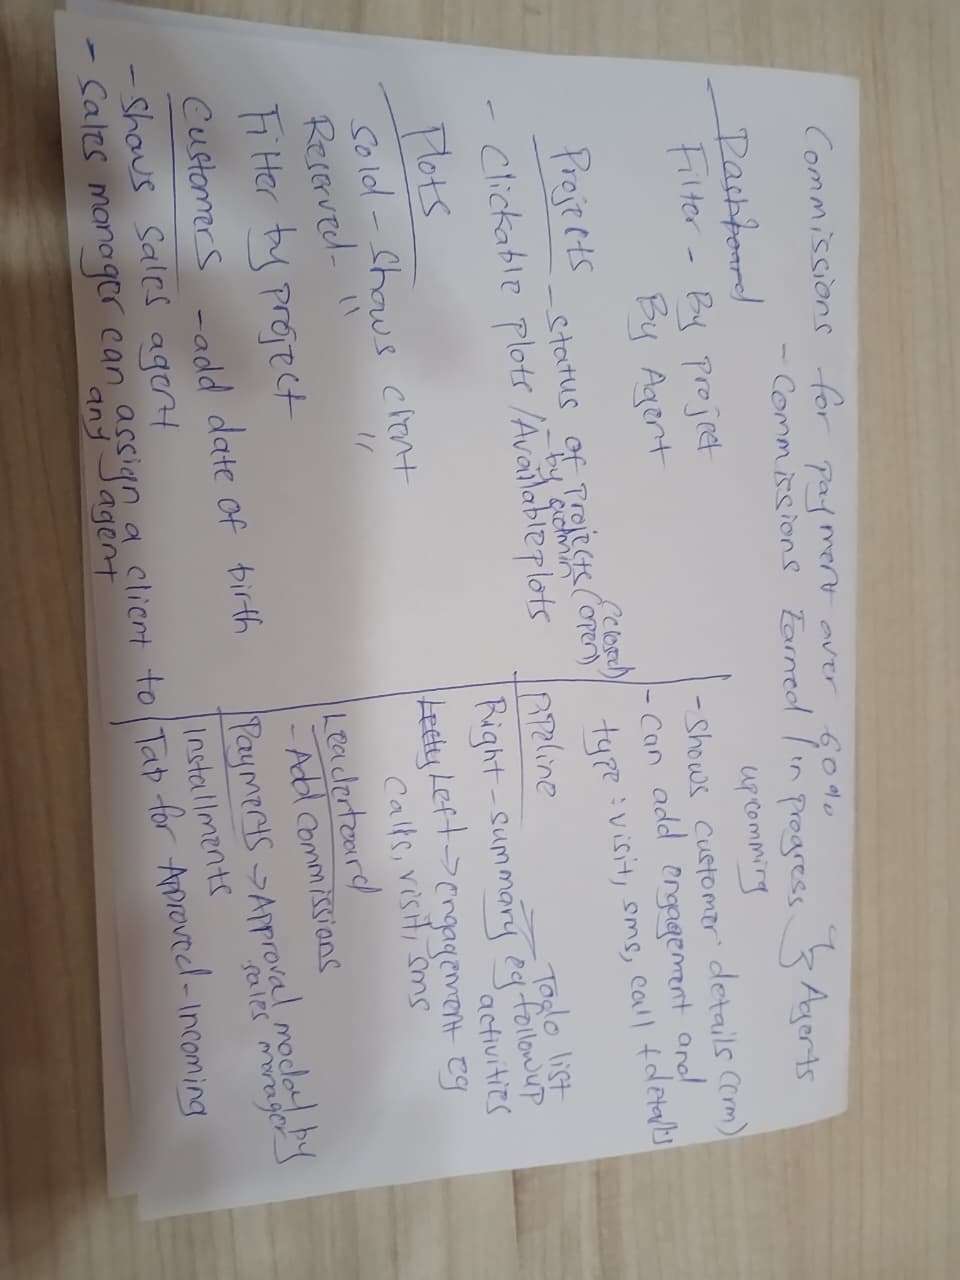 Commissions for payment over 60% } Agents
- Commissions Earned / in progress
upcomming
Dashboard
Filter - By project
By Agent
Projects - status of projects (open)
(closed)
- by admin
- Clickable plots / Available plots
Plots
Sold - Shows client
Reserved - " "
Filter by project
Customers - add date of birth
- Shows sales agent
- Sales manager can assign a client to
any agent
- Shows customer details (crm)
- Can add engagement and
type : visit, sms, call + details
Pipeline
Todo list
Right - summary eg followup
activities
Left → engagement eg
calls, visit, sms
Leaderboard
- Add commissions
Payments → Approval model by
sales manager
Installments
Tab for Approved - Incoming